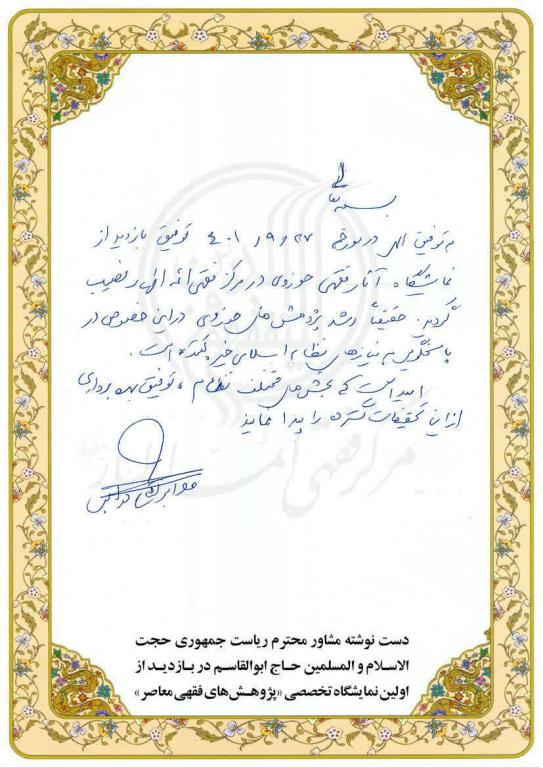 بسمه تعالی
به توفیق الهی در مورخ ۴۰۱/۹/۲۷ توفیق بازدید از
نمایشگاه آثار فقهی حوزوی در مرکز فقهی ائمه اطهار نصیب
گردید. حقیقتاً رشد پژوهش های حوزوی در این خصوص در
پاسخگویی به نیازهای نظام اسلامی خیره کننده است.
امید است که بخش های مختلف نظام، توفیق بهره برداری
از این تحقیقات گسترده را پیدا نمایند
دست نوشته مشاور محترم ریاست جمهوری حجت
الاسلام و المسلمین حاج ابوالقاسم در بازدید از
اولین نمایشگاه تخصصی «پژوهش‌های فقهی معاصر»